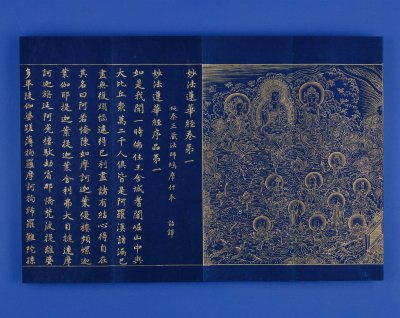 妙法蓮華經卷第一
姚秦三藏法師鳩摩什奉 詔譯
妙法蓮華經序品第一
如是我聞一時佛住王舍城耆闍崛山中與
大比丘衆萬二千人俱皆是阿羅漢諸漏已
盡無復煩惱逮得己利盡諸有結心得自在
其名曰阿若憍陳如摩訶迦葉優樓頻螺迦
葉伽耶迦葉那提迦葉舍利弗大目揵連摩
訶迦旃延阿㝹樓馱劫賓那憍梵波提離婆
多畢陵伽婆蹉薄拘羅摩訶拘絺羅難陀孫